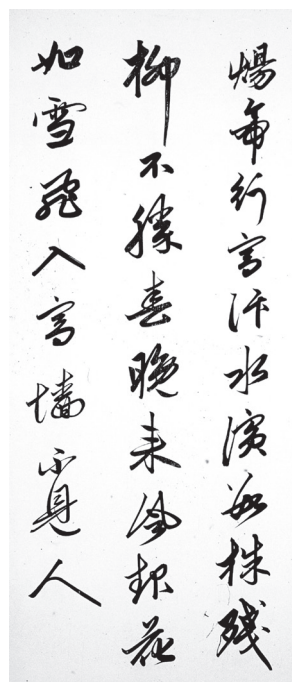 煬帝行宮汴水濱數株殘
柳不勝春晚来風起花
如雪飛入宮墻不見人